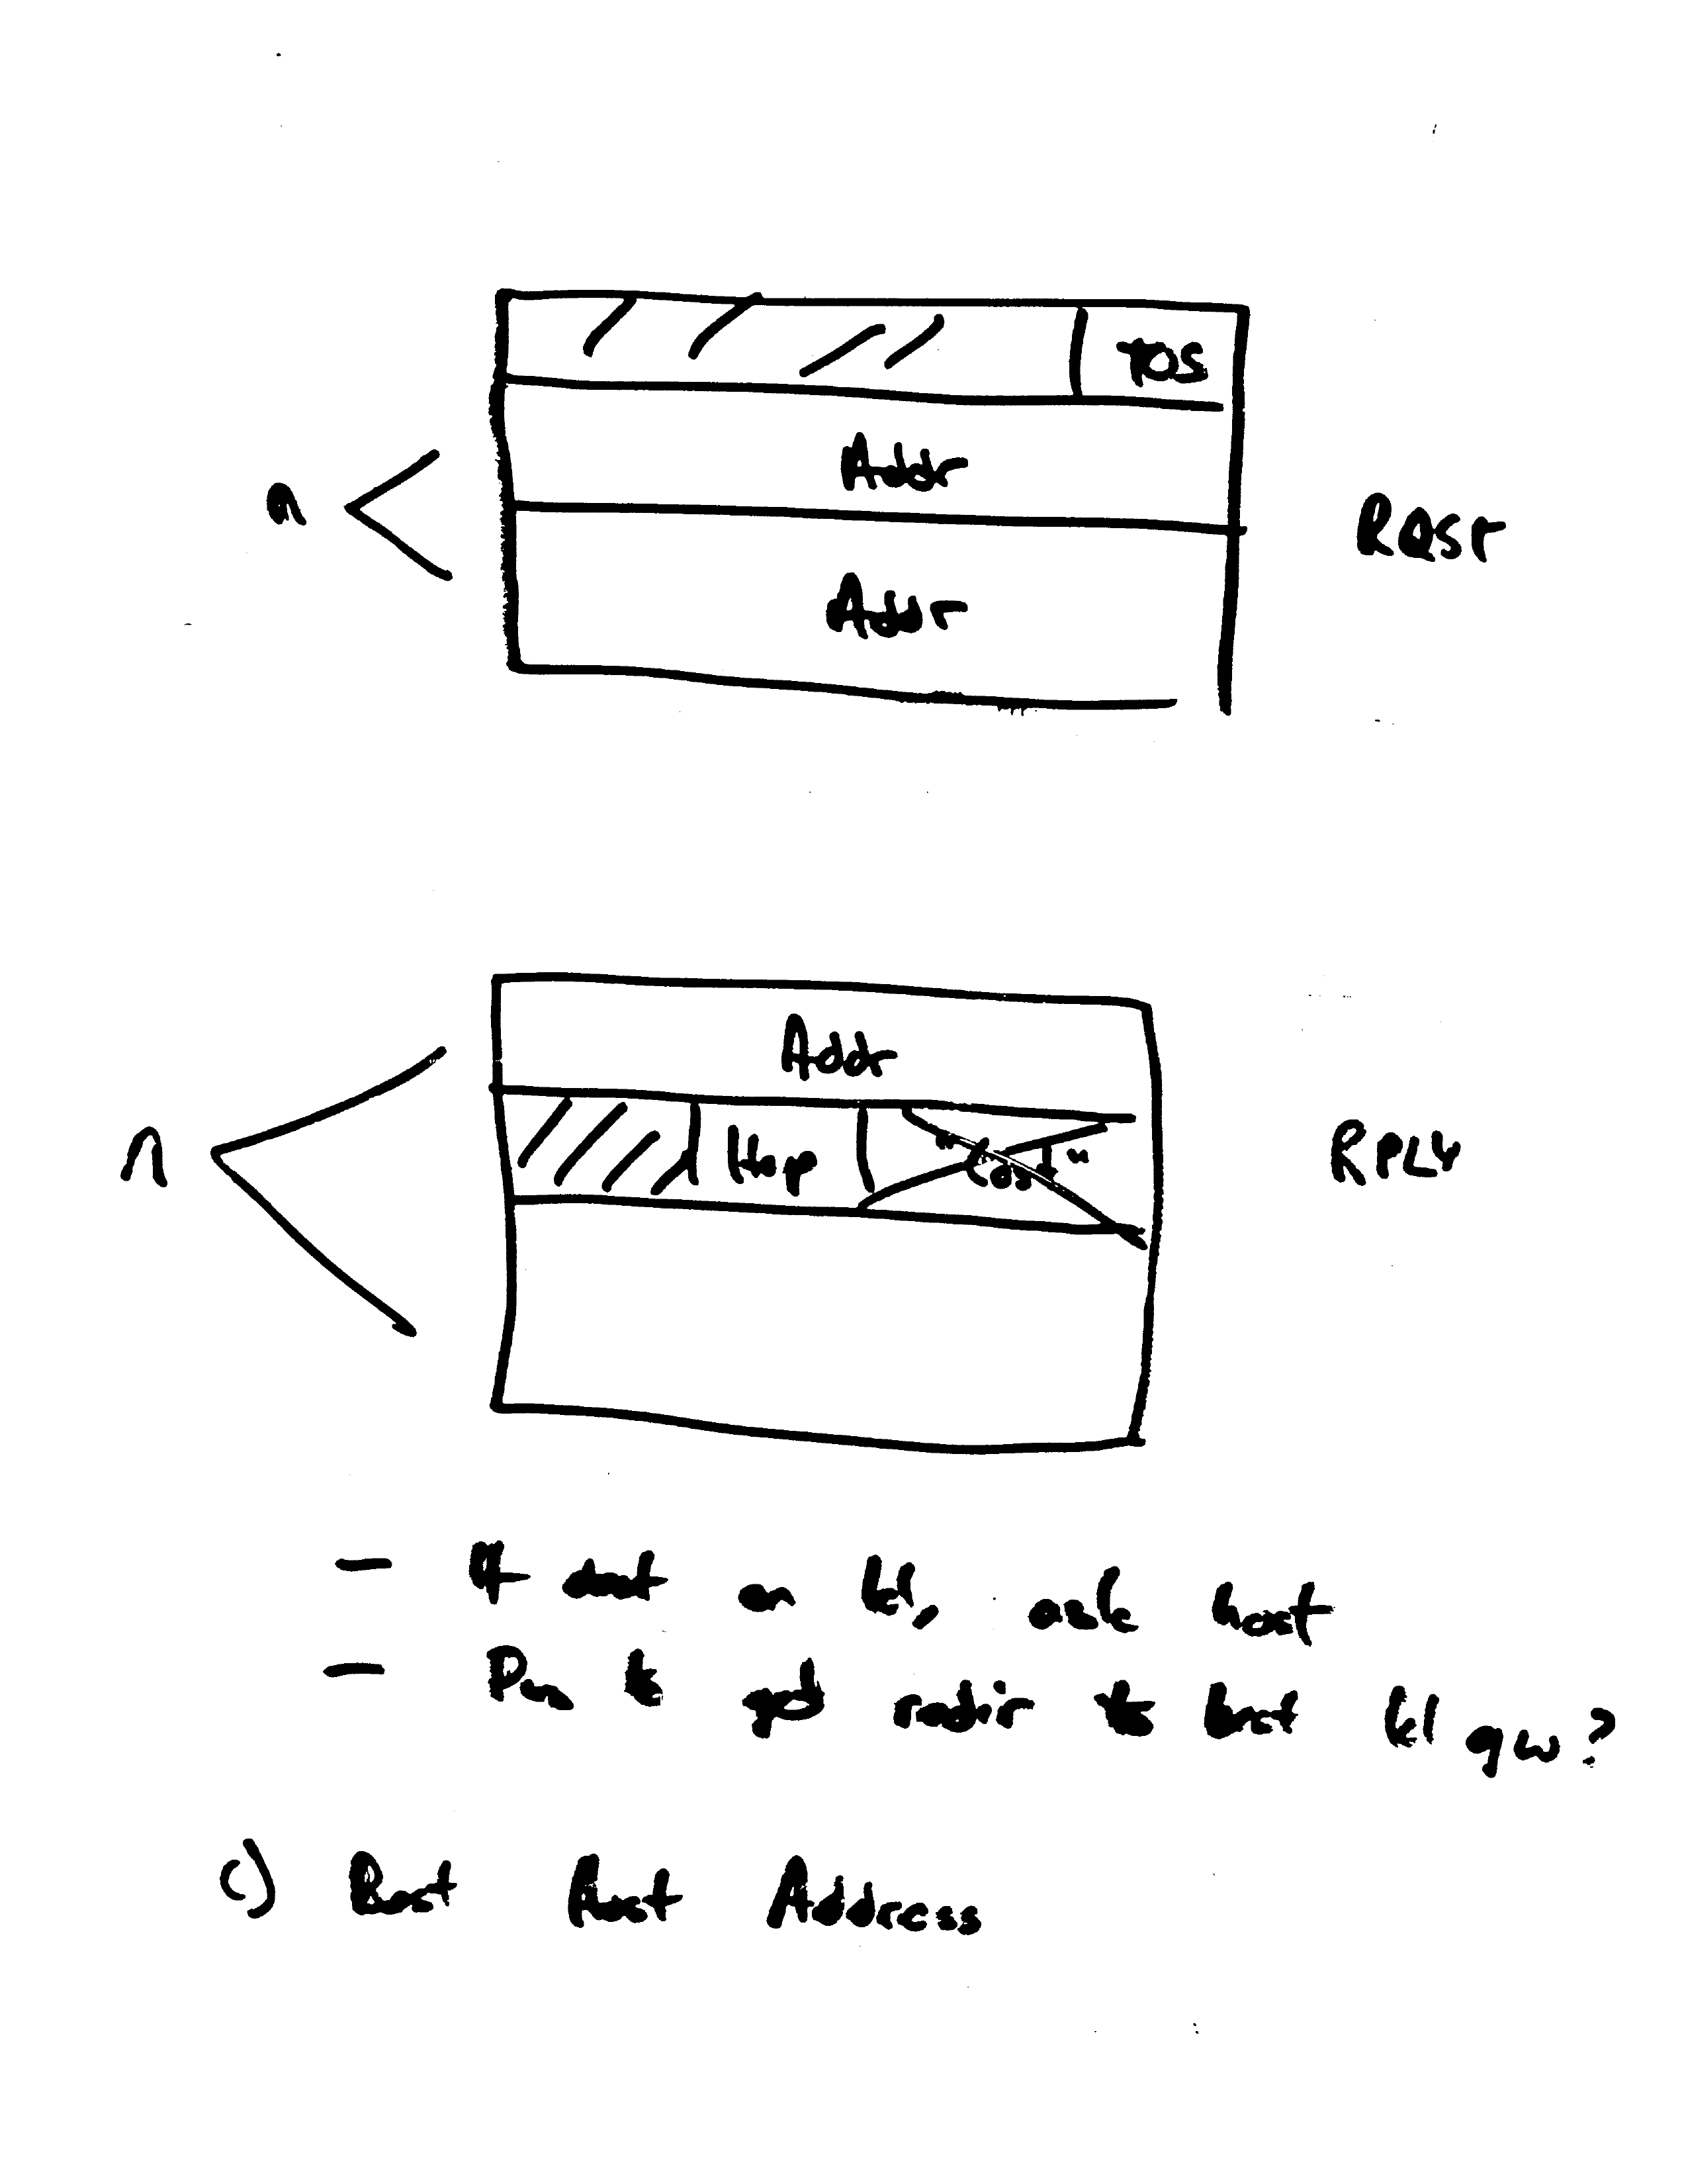 TOS
Addr
n
RQST
Addr
Addr
n
Hop "Cost"
RPLY
- If dest on lcl, ask host
- to get redir to best lcl gw?
c) Best Host Address